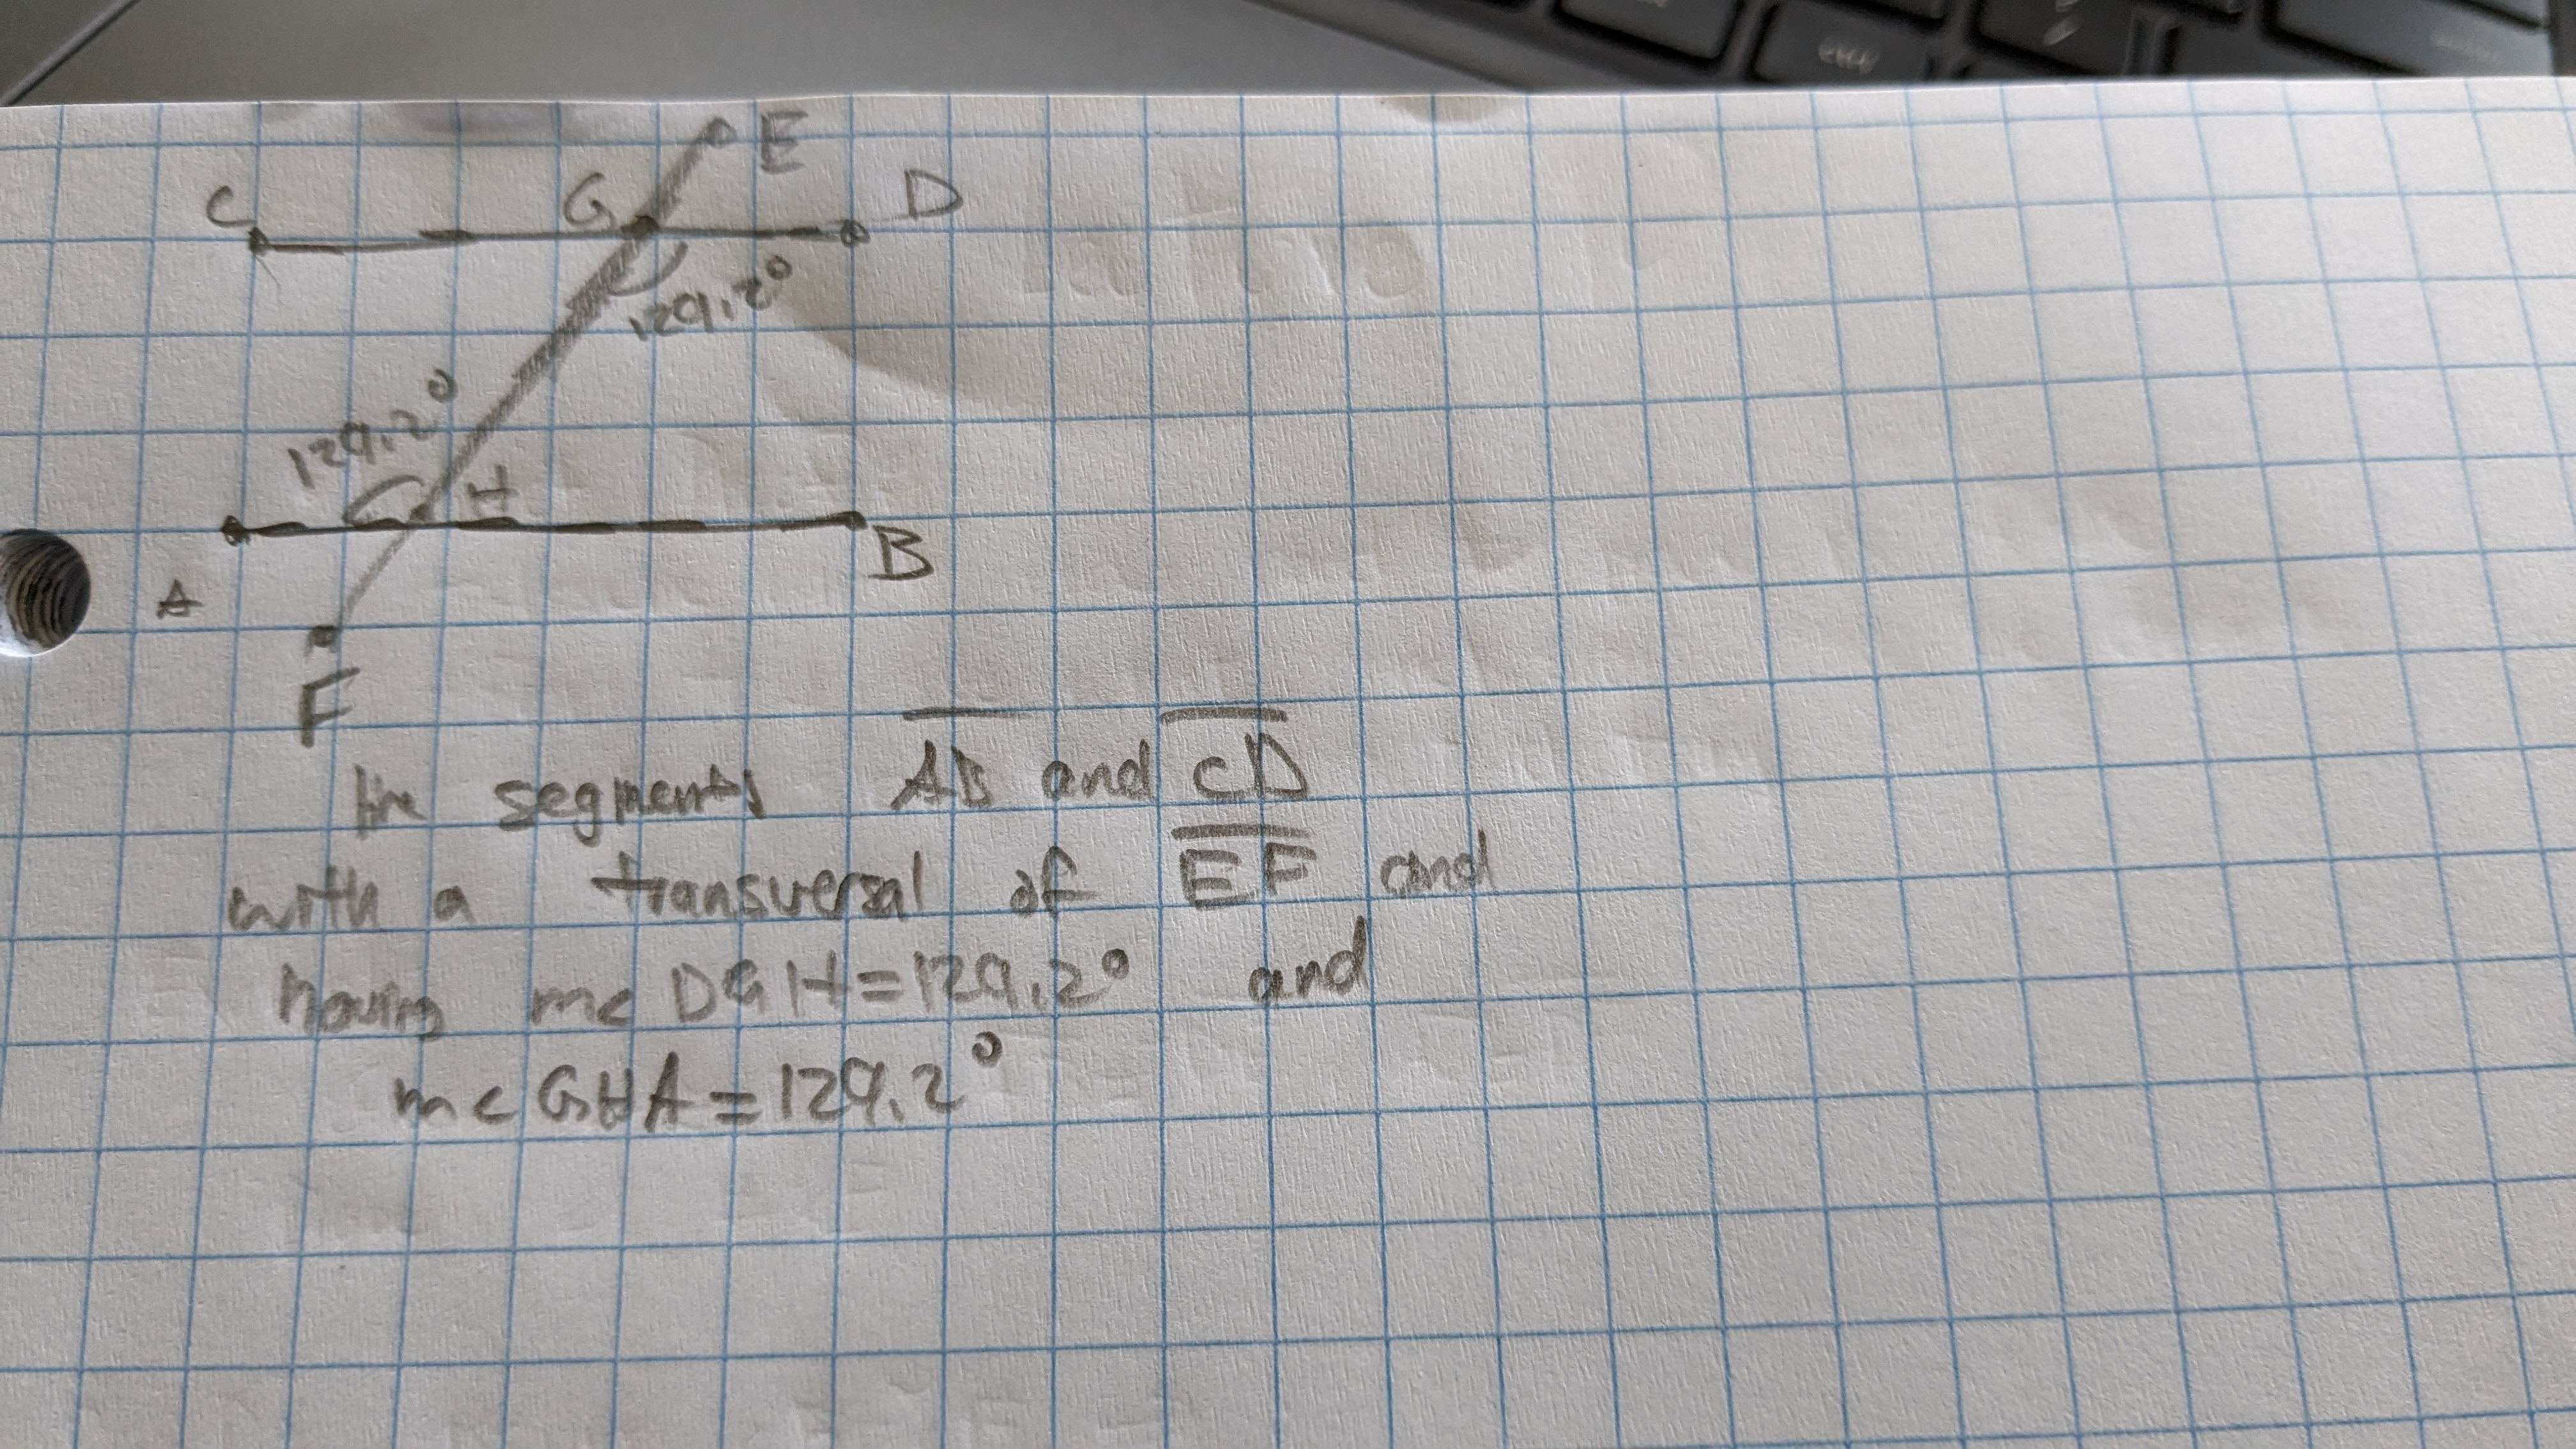 E
C G D
129.2°
129.2°
H
A B
F
line segments AB and CD
with a transversal of EF and
having m< DGH = 129.2° and
m< GHA = 129.2°